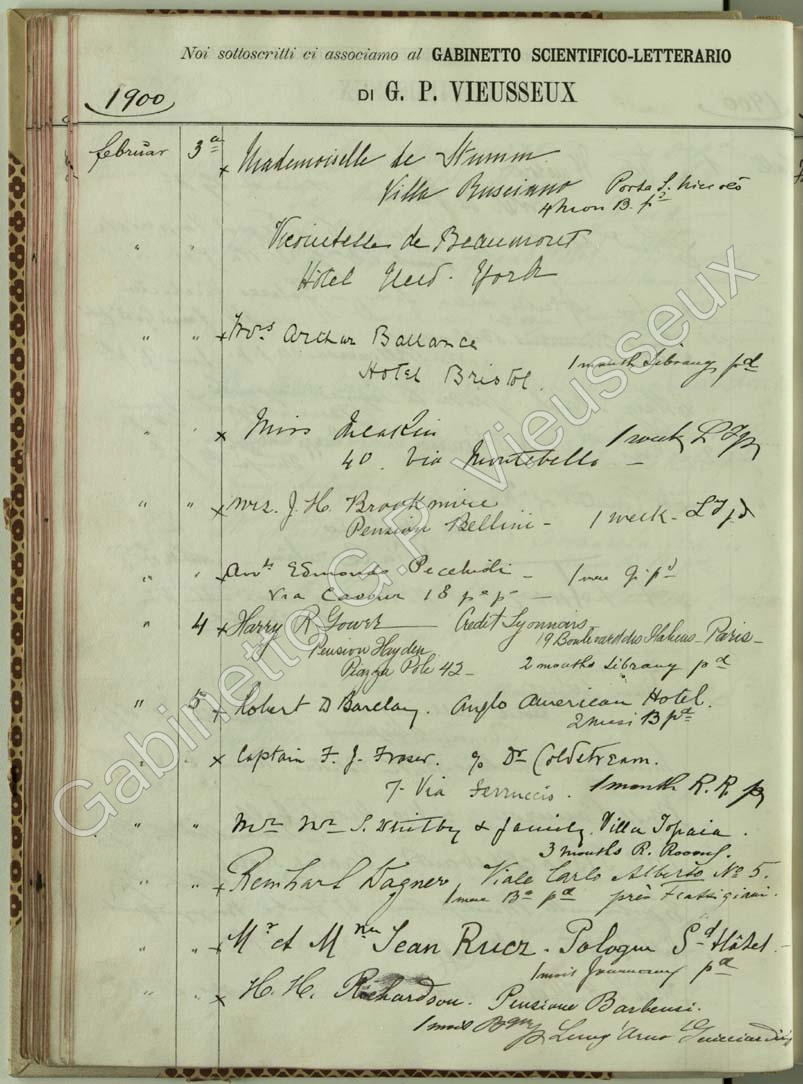 Noi sottoscritti ci associamo al GABINETTO SCIENTIFICO-LETTERARIO
DI G. P. VIEUSSEUX
1900
februar 3a x Mademoiselle de Stumm
Villa Rusciano Porta S. Niccolò
4 mon B. pd
" " Vicomtesse de Beaumont
Hôtel New-York
" " x Mrs Arthur Ballance
Hotel Bristol. 1 month Library pd
" " x Miss Meakin 1 week
40. Via Montebello –
" " x Mrs. J. H. Brookmire
Pension Bellini – 1 week –
" " x Edmondo –
Via Cavour 18 p° p° –
" 4 x Harry R Gower – Credit Lyonnais
19 Boulevard des Italiens – Paris –
Pension Hayden
Piazza 42 – 2 months Library pd
" 5 x Robert D Barclay. Anglo American Hotel.
2 mesi B pd
" " x Captain F. J. Fraser. c/o Dr Coldstream.
7 Via Ferruccio. 1 month R. R.
" " Mr Mrs S. Whitby & family. Villa Topaia.
3 months R. Rooms.
" " x Reinhart Wagner Viale Carlo Alberto No 5.
pd près
" " x Mr et Mme Jean – Pologne Sd Hôtel –
1 mois pd
" " x H. H. Richardson. Pensione Barbensi.
1 mois Lung' Arno Guicciardini
Gabinetto G.P. Vieusseux